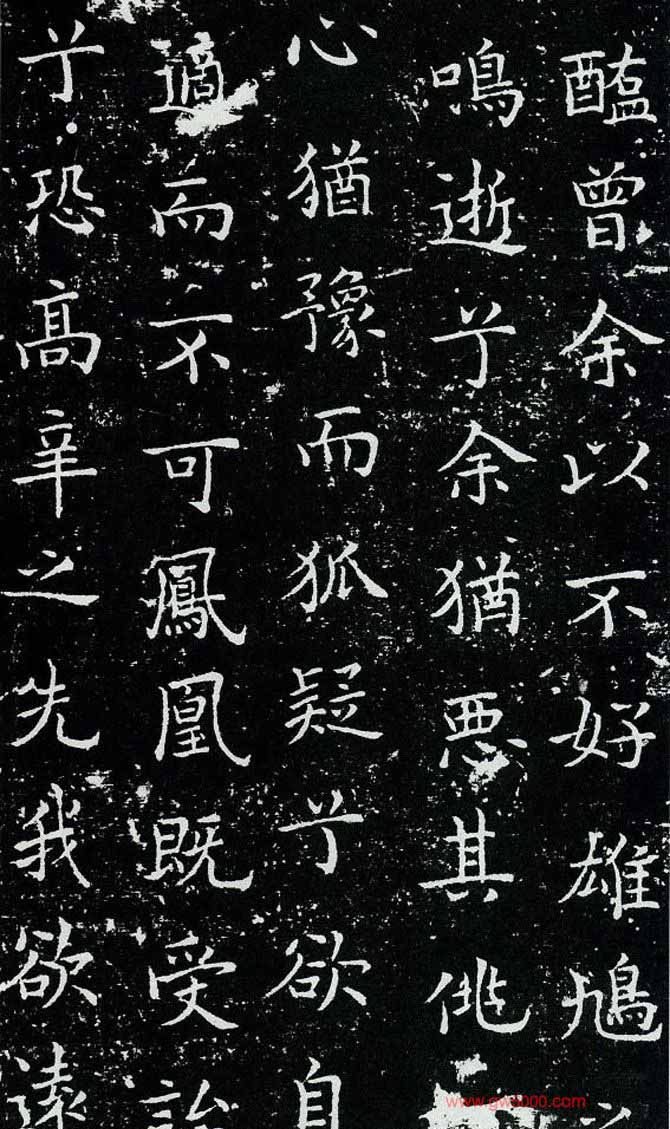 曾余以不好雄鳩之
鳴逝兮余猶惡其佻
心猶豫而狐疑兮欲自
適而不可鳳凰既受詒
兮恐高辛之先我欲遠